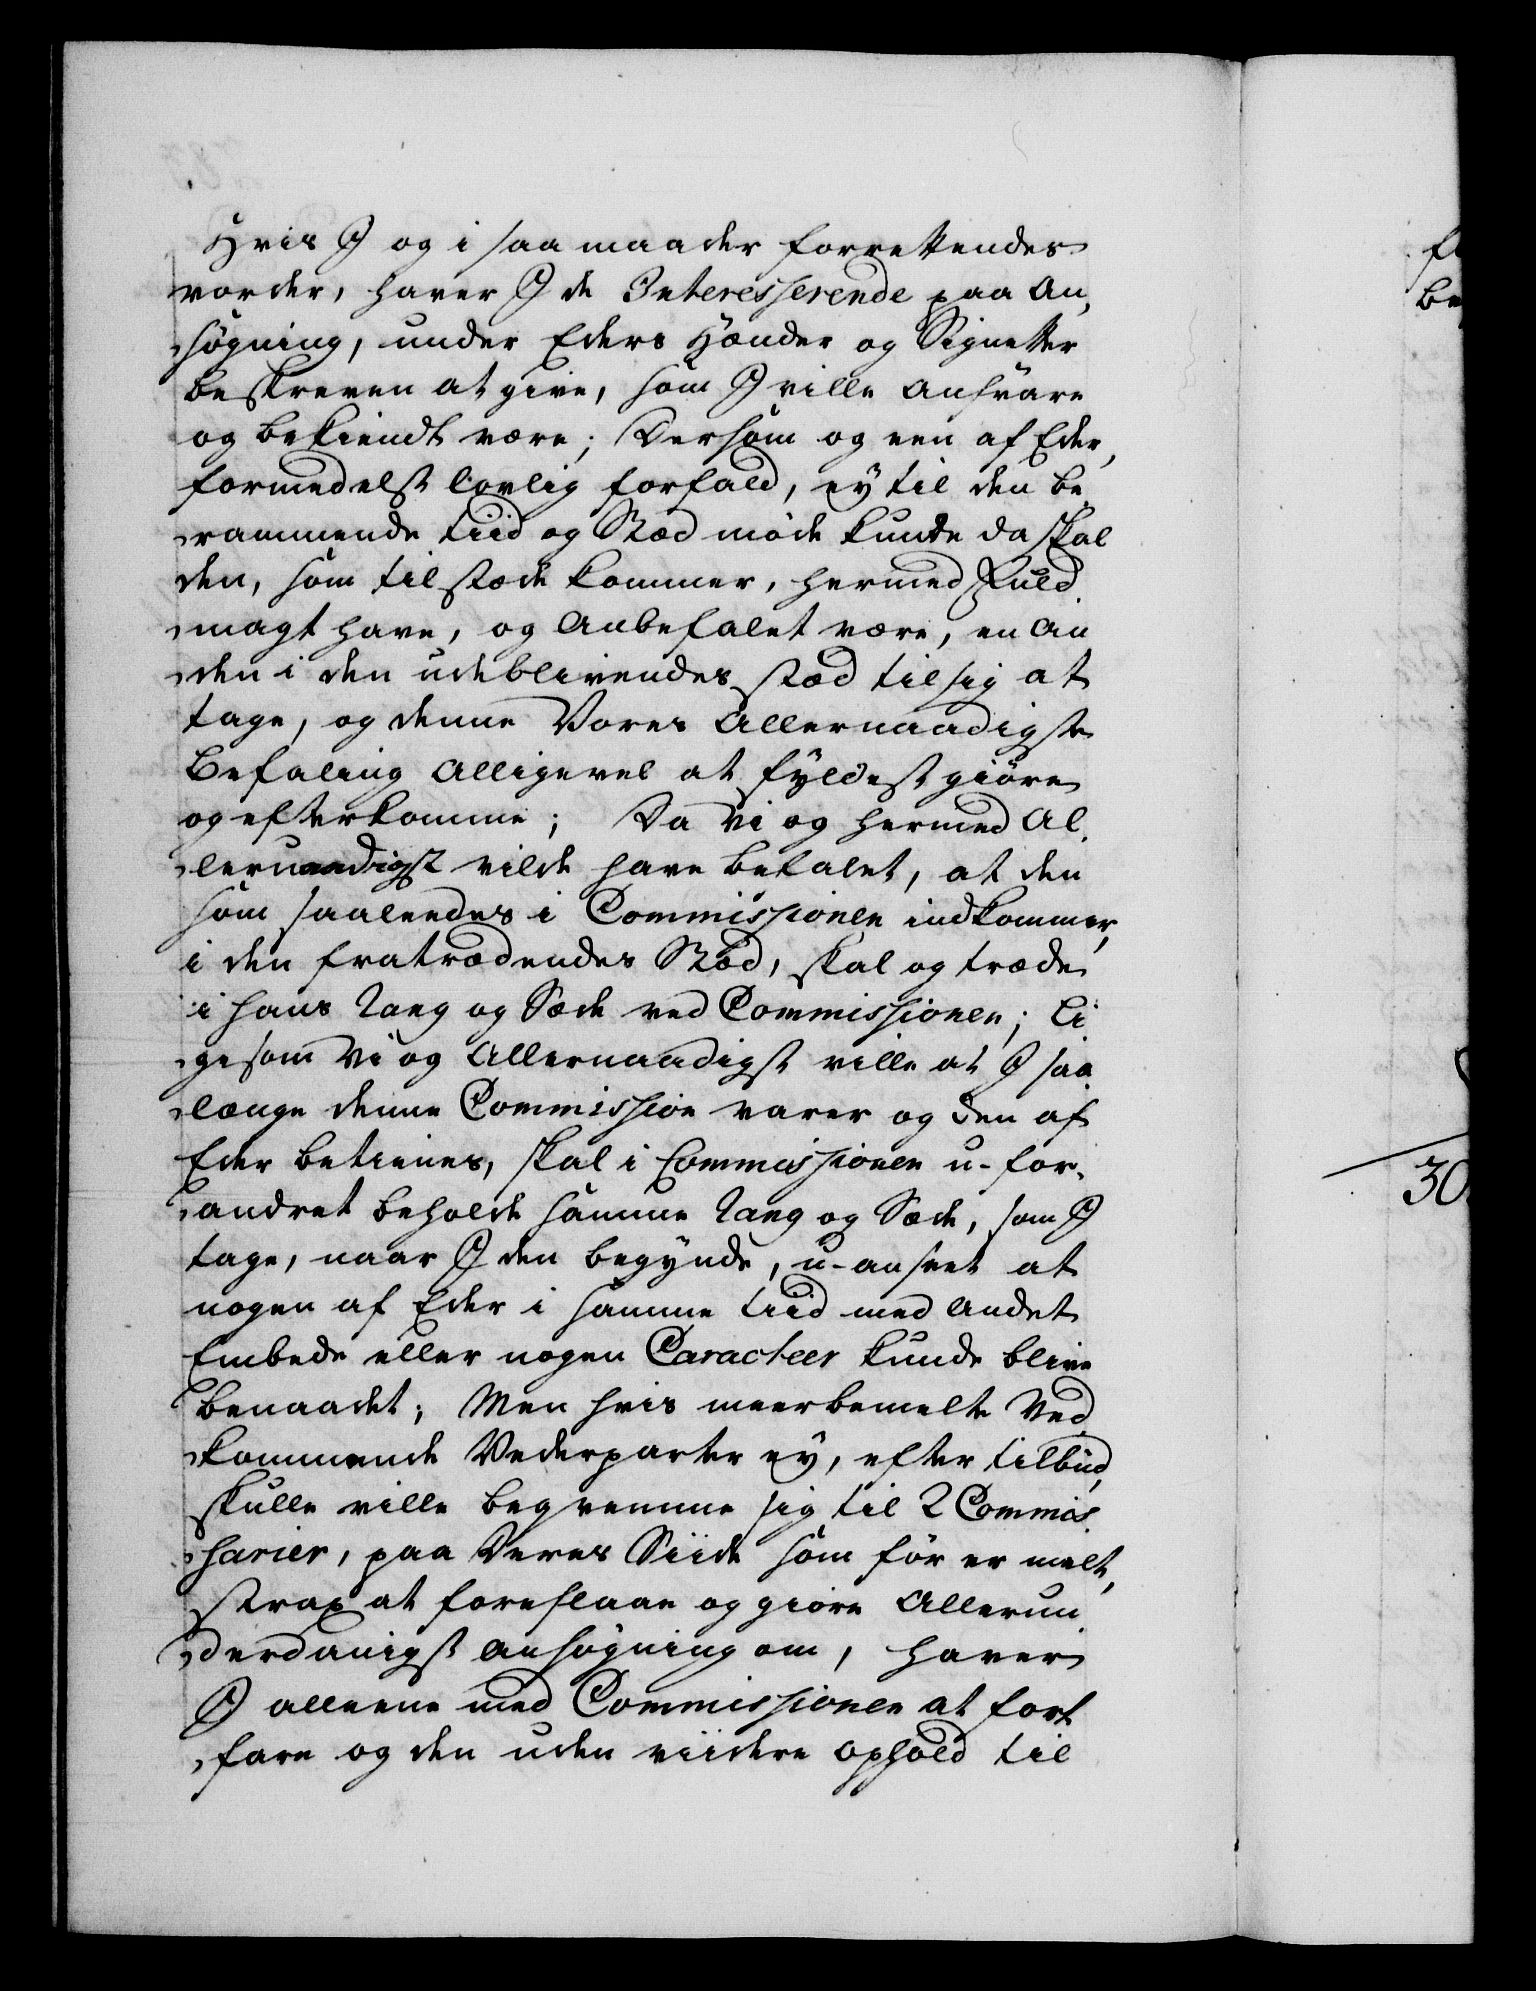 Hvis I og i saa maader forrettendes
vorder, haver I de Interesserende paa An,
søgning, under Eders Hænder og Signetter
beskreven at give, som I ville ansvare
og bekiendt være; Dersom og een af Eder,
formedelst lovlig forfald, ey til den be
rammende tiid og Stæd møde kunde da skal
den, som tilstæde kommer, hermed Fuld
magt have, og Anbefalet være, en An
den i den udeblivendes stæd til sig at
tage, og denne Vores Allernaadigste
Befaling Alligevel at fyldestgiøre
og efterkomme; Da Vi og hermed Al
lernaadigst vilde have befalet, at den
som saaleedes i Commissionen indkommer,
i den fratrædendes Stæd, skal og træde
i hans Rang og Sæde ved Commissionen; Li
gesom Vi og Allernaadigst ville at I saa
længe denne Commission varer og den af
Eder betienes, skal i Commissionen u-for,
andret beholde samme Rang og Sæde, som I
tage, naar I den begynde, u-anseet at
nogen af Eder i samme tiid med Andet
Embede eller nogen Caracteer kunde blive
benaadet; Men hvis meerbemelte Ved
kommende Vederparter ey, efter tilbud,
skulle ville beqvemme sig til 2 Commis
sarier, paa Deres Siide som før er melt,
strax at foreslaae og giøre Allerun
derdanigst ansøgning om, haver
I alleene med Commissionen at fort
fare og den uden viidere ophold til
30